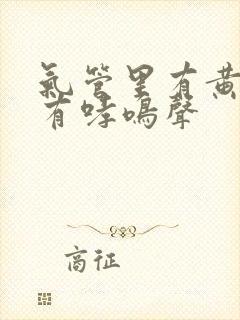 氣管里有黄
有哮鳴聲
商征